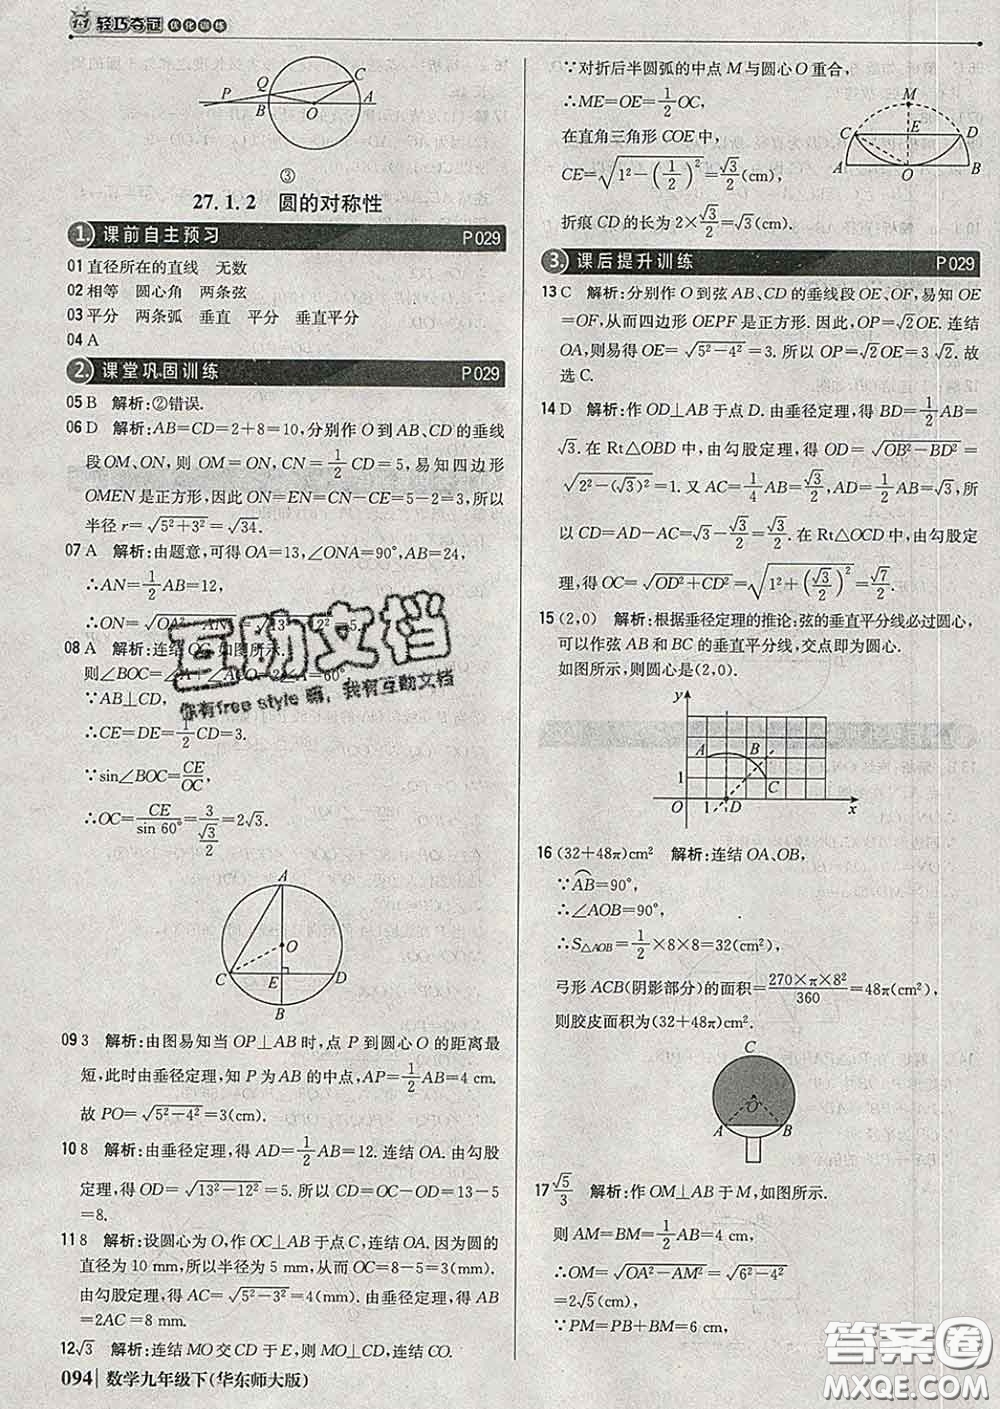 1+1 轻巧夺冠 优化训练
P Q C B O A
③
27.1.2 圆的对称性
1. 课前自主预习 P029
01 直径所在的直线 无数
02 相等 圆心角 两条弦
03 平分 两条弧 垂直 平分 垂直平分
04 A
2. 课堂巩固训练 P029
05 B 解析:②错误.
06 D 解析:AB=CD=2+8=10,分别作O到AB、CD的垂线
段OM、ON,则OM=ON,CN=1/2CD=5,易知四边形
OMEN是正方形,因此ON=EN=CN-CE=5-2=3,所以
半径r=√(5²+3²)=√34.
07 A 解析:由题意,可得OA=13,∠ONA=90°,AB=24,
∴AN=1/2AB=12,
∴ON=√(OA²-AN²)=√(13²-12²)=5.
08 A 解析:连结OC,如图所示.
则∠BOC=∠A+∠ACO=2∠A=60°,
∵AB⊥CD,
∴CE=DE=1/2CD=3.
∵sin∠BOC=CE/OC,
∴OC=CE/sin 60°=3/(√3/2)=2√3.
A O C E D B
09 3 解析:由图易知当OP⊥AB时,点P到圆心O的距离最
短,此时由垂径定理,知P为AB的中点,AP=1/2AB=4 cm.
故PO=√(5²-4²)=3(cm).
10 8 解析:由垂径定理,得AD=1/2AB=12.连结OA.由勾股
定理,得OD=√(13²-12²)=5.所以CD=OC-OD=13-5
=8.
11 8 解析:设圆心为O,作OC⊥AB于点C,连结OA.因为圆的
直径为10 mm,所以半径为5 mm,从而OC=8-5=3(mm).
由勾股定理得AC=√(5²-3²)=4(mm).由垂径定理,得
AB=2AC=8 mm.
12 √3 解析:连结MO交CD于E,则MO⊥CD,连结CO.
094 数学九年级下(华东师大版)
∵对折后半圆弧的中点M与圆心O重合,
∴ME=OE=1/2OC,
在直角三角形COE中,
CE=√(1²-(1/2)²)=√3/2(cm)
折痕CD的长为2×√3/2=√3(cm).
M C E D A O B
3. 课后提升训练 P029
13 C 解析:分别作O到弦AB、CD的垂线段OE、OF,易知OE
=OF,从而四边形OEPF是正方形.因此,OP=√2OE.连结
OA,则易得OE=√(5²-4²)=3.所以OP=√2OE=3√2.故
选C.
14 D 解析:作OD⊥AB于点D.由垂径定理,得BD=1/2AB=
√3.在Rt△OBD中,由勾股定理,得OD=√(OB²-BD²)=
√(2²-(√3)²)=1.又AC=1/4AB=√3/2,AD=1/2AB=√3,所
以CD=AD-AC=√3-√3/2=√3/2.在Rt△OCD中,由勾股定
理,得OC=√(OD²+CD²)=√(1²+(√3/2)²)=√7/2.
15 (2,0) 解析:根据垂径定理的推论:弦的垂直平分线必过圆心,
可以作弦AB和BC的垂直平分线,交点即为圆心.
如图所示,则圆心是(2,0).
y A B C 1 O 1 D x
16 (32+48π)cm² 解析:连结OA、OB,
∵AB=90°,
∴∠AOB=90°,
∴S△AOB=1/2×8×8=32(cm²),
弓形ACB(阴影部分)的面积=270×π×8²/360=48π(cm²),
则胶皮面积为(32+48π)cm².
C O A B
17 √5/3 解析:作OM⊥AB于M,如图所示.
则AM=BM=1/2AB=4(cm),
∴OM=√(OA²-AM²)=√(6²-4²)
=2√5(cm),
∵PM=PB+BM=6(cm)
互助文档
你有free style嘛,我有互助文档
答案圈
MXQE.COM